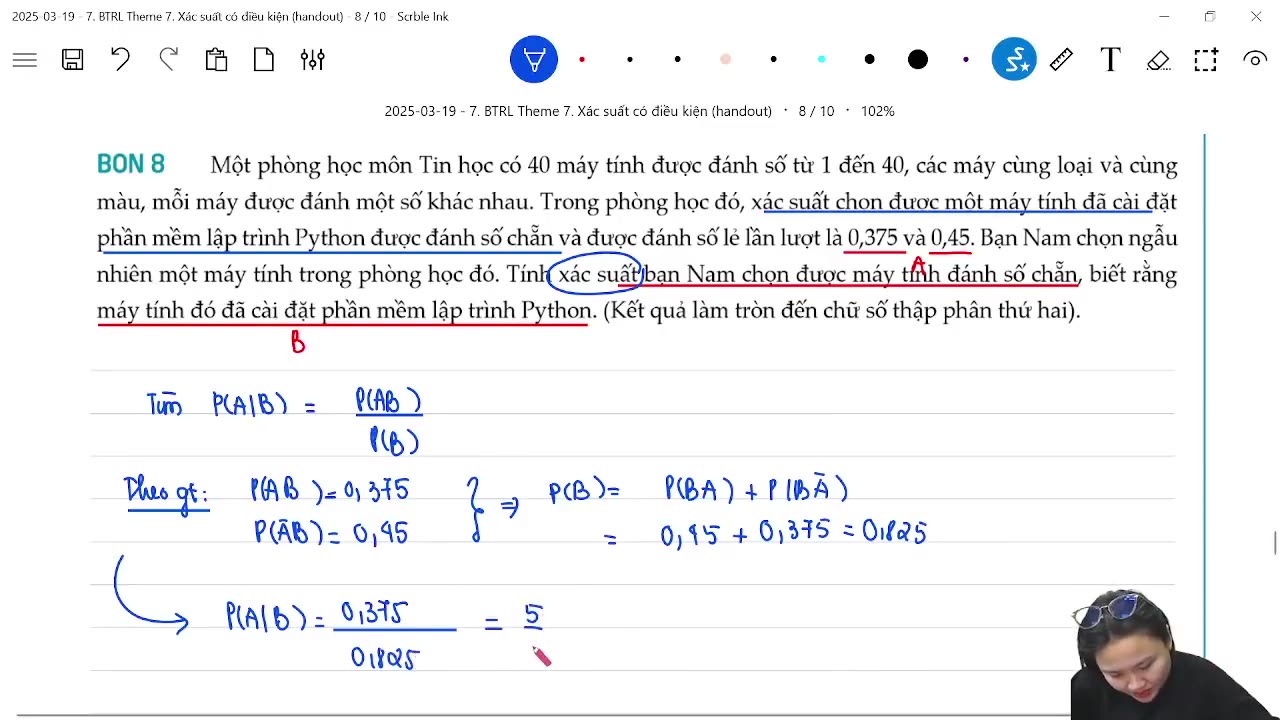 2025-03-19 - 7. BTRL Theme 7. Xác suất có điều kiện (handout) - 8 / 10 - Scrble Ink
T
2025-03-19 - 7. BTRL Theme 7. Xác suất có điều kiện (handout) · 8 / 10 · 102%
BON 8 Một phòng học môn Tin học có 40 máy tính được đánh số từ 1 đến 40, các máy cùng loại và cùng
màu, mỗi máy được đánh một số khác nhau. Trong phòng học đó, xác suất chọn được một máy tính đã cài đặt
phần mềm lập trình Python được đánh số chẵn và được đánh số lẻ lần lượt là 0,375 và 0,45. Bạn Nam chọn ngẫu
nhiên một máy tính trong phòng học đó. Tính xác suất bạn Nam chọn được máy tính đánh số chẵn, biết rằng
A
máy tính đó đã cài đặt phần mềm lập trình Python. (Kết quả làm tròn đến chữ số thập phân thứ hai).
B
Tìm P(A|B) = P(AB)
P(B)
Theo gt: P(AB) = 0,375 } ⇒ P(B) = P(BA) + P(BĀ)
P(ĀB) = 0,45 = 0,45 + 0,375 = 0,825
P(A|B) = 0,375 = 5
0,825